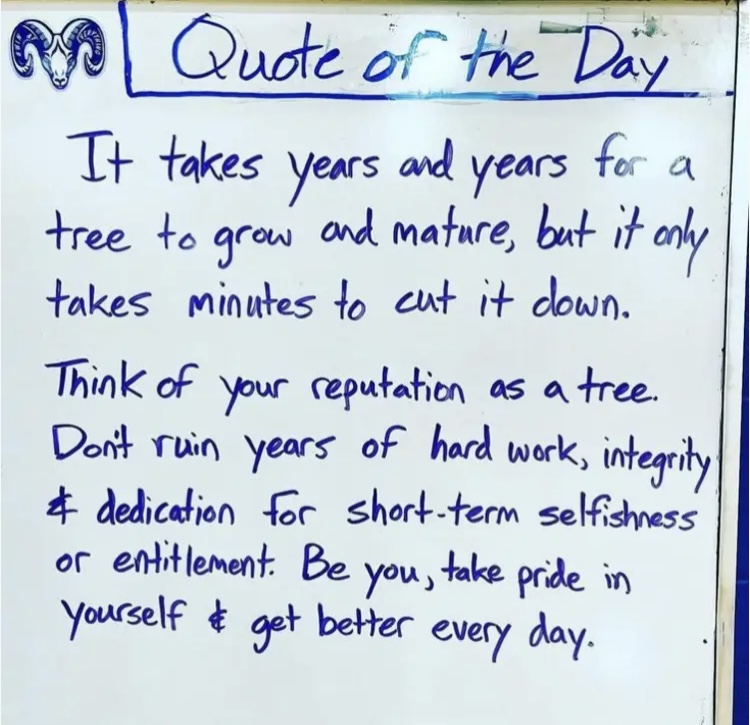 Quote of the Day
It takes years and years for a
tree to grow and mature, but it only
takes minutes to cut it down.
Think of your reputation as a tree.
Don't ruin years of hard work, integrity
& dedication for short-term selfishness
or entitlement. Be you, take pride in
yourself & get better every day.